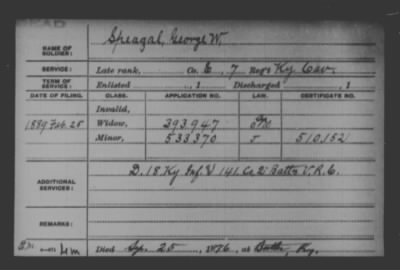 DEAD
NAME OF SOLDIER: Speagal, George W.
SERVICE: Late rank, Co. E, 7 Reg't Ky. Cav.
TERM OF SERVICE: Enlisted , 1 Discharged , 1
DATE OF FILING. CLASS. APPLICATION NO. LAW. CERTIFICATE NO.
Invalid,
1889 Feb. 25 Widow, 393,947
Minor, 533,370 510,152
ADDITIONAL SERVICES: D. 18 Ky Inf. & 141. Co 2' Batt'n V.R.C.
REMARKS:
Died Sep. 25, 1876, at Butler, Ky.